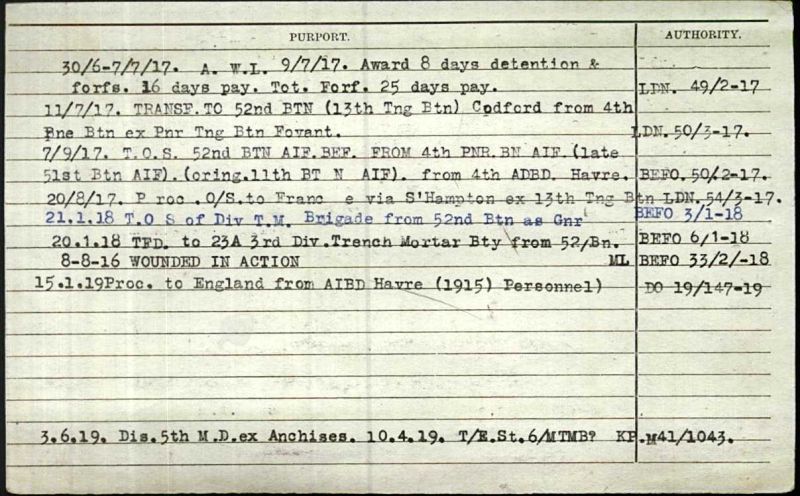 PURPORT. AUTHORITY.
30/6-7/7/17. A.W.L. 9/7/17. Award 8 days detention &
forfs. 16 days pay. Tot. Forf. 25 days pay. LDN. 49/2-17
11/7/17. TRANSF.TO 52nd BTN (13th Tng Btn) Codford from 4th
Pne Btn ex Pnr Tng Btn Fovant. LDN.50/3-17.
7/9/17. T.O.S. 52nd BTN AIF.BEF. FROM 4th PNR.BN AIF.(late
51st Btn AIF).(oring.11th BT N AIF). from 4th ADBD. Havre. BEFO.50/2-17.
20/8/17. P roc .O/S.to Franc e via S'Hampton ex 13th Tng Btn LDN.54/3-17.
21.1.18 T.O S of Div T.M. Brigade from 52nd Btn as Gnr BEFO 3/1-18
20.1.18 TFD. to 23A 3rd Div.Trench Mortar Bty from 52/Bn. BEFO 6/1-18
8-8-16 WOUNDED IN ACTION ML BEFO 33/2/-18
15.1.19Proc. to England from AIBD Havre (1915) Personnel) DO 19/147-19
3.6.19. Dis.5th M.D.ex Anchises. 10.4.19. T/E.St.6/MTMB? KP.M41/1043.